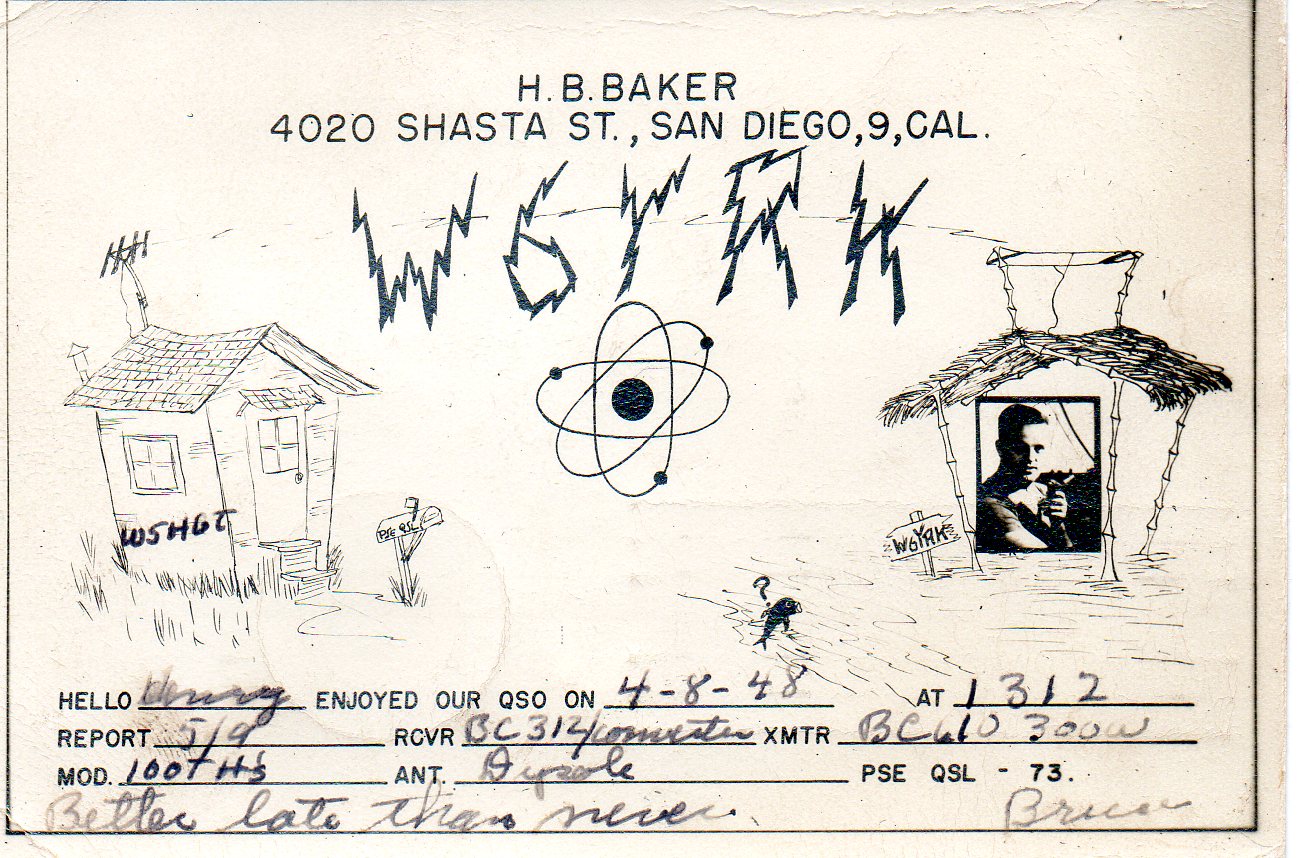 H.B.BAKER
4020 SHASTA ST., SAN DIEGO, 9, CAL.
W6YRK
W5HGT
PSE QSL
W6YRK
?
HELLO Henry ENJOYED OUR QSO ON 4-8-48 AT 1312
REPORT 5/9 RCVR BC312/converter XMTR BC610 300W
MOD. 100THs ANT. Dipole PSE QSL - 73.
Better late than never.
Bruce